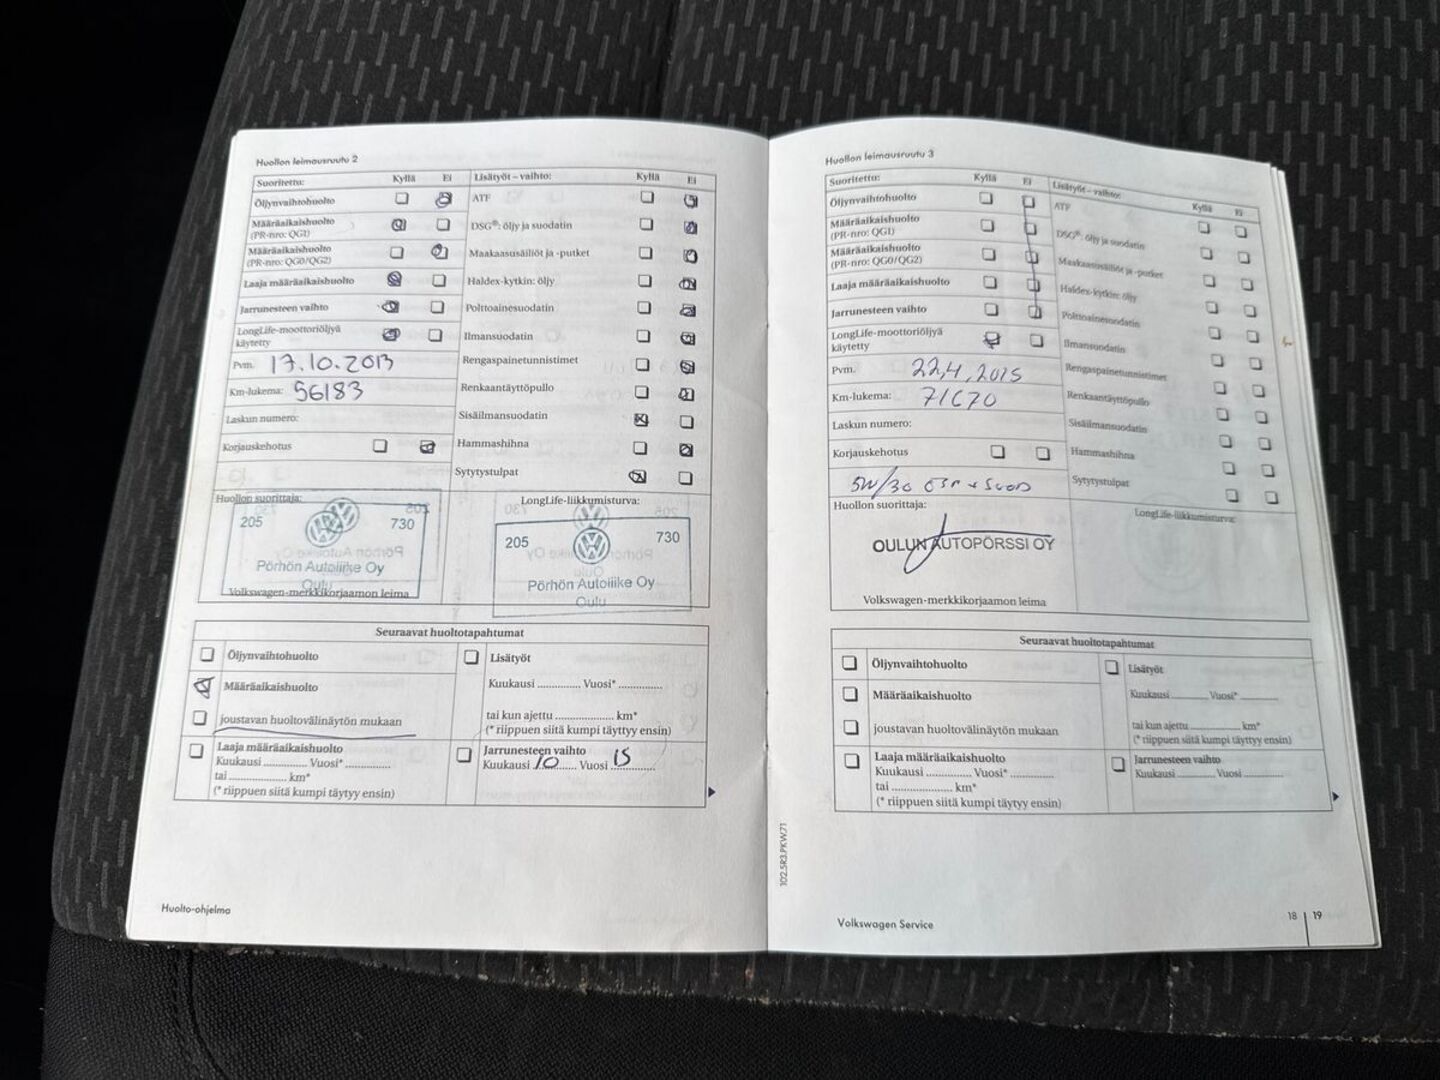 Huollon leimausruutu 2
Suoritettu: Kyllä Ei Lisätyöt – vaihto: Kyllä Ei
Öljynvaihtohuolto ATF
Määräaikaishuolto
(PR-nro: QG1) DSG®: öljy ja suodatin
Määräaikaishuolto
(PR-nro: QG0/QG2) Maakaasusäiliöt ja -putket
Laaja määräaikaishuolto Haldex-kytkin: öljy
Jarrunesteen vaihto Polttoainesuodatin
LongLife-moottoriöljyä
käytetty Ilmansuodatin
Pvm. 17.10.2013 Rengaspainetunnistimet
Km-lukema: 56183 Renkaantäyttöpullo
Laskun numero: Sisäilmansuodatin
Korjauskehotus Hammashihna
Sytytystulpat
Huollon suorittaja: LongLife-liikkumisturva:
205 730
Pörhön Autoliike Oy
Oulu
Volkswagen-merkkikorjaamon leima
205 730
Pörhön Autoliike Oy
Oulu
Seuraavat huoltotapahtumat
Öljynvaihtohuolto Lisätyöt
Määräaikaishuolto Kuukausi .............. Vuosi* ..............
joustavan huoltovälinäytön mukaan tai kun ajettu ................... km*
(* riippuen siitä kumpi täytyy ensin)
Laaja määräaikaishuolto Jarrunesteen vaihto
Kuukausi .............. Vuosi* .............. Kuukausi 10 Vuosi 15
tai ................... km*
(* riippuen siitä kumpi täytyy ensin)
Huolto-ohjelma
Huollon leimausruutu 3
Suoritettu: Kyllä Ei Lisätyöt – vaihto: Kyllä Ei
Öljynvaihtohuolto ATF
Määräaikaishuolto
(PR-nro: QG1) DSG®: öljy ja suodatin
Määräaikaishuolto
(PR-nro: QG0/QG2) Maakaasusäiliöt ja -putket
Laaja määräaikaishuolto Haldex-kytkin: öljy
Jarrunesteen vaihto Polttoainesuodatin
LongLife-moottoriöljyä
käytetty Ilmansuodatin
Pvm. 22,4,2015 Rengaspainetunnistimet
Km-lukema: 71670 Renkaantäyttöpullo
Laskun numero: Sisäilmansuodatin
Korjauskehotus Hammashihna
5W/30 Sytytystulpat
Huollon suorittaja: LongLife-liikkumisturva:
OULUN AUTOPÖRSSI OY
Volkswagen-merkkikorjaamon leima
Seuraavat huoltotapahtumat
Öljynvaihtohuolto Lisätyöt
Määräaikaishuolto Kuukausi .............. Vuosi* ..............
joustavan huoltovälinäytön mukaan tai kun ajettu ................... km*
(* riippuen siitä kumpi täytyy ensin)
Laaja määräaikaishuolto Jarrunesteen vaihto
Kuukausi .............. Vuosi* .............. Kuukausi .............. Vuosi ..............
tai ................... km*
(* riippuen siitä kumpi täytyy ensin)
102.5R3.PKW.71
Volkswagen Service 18 19